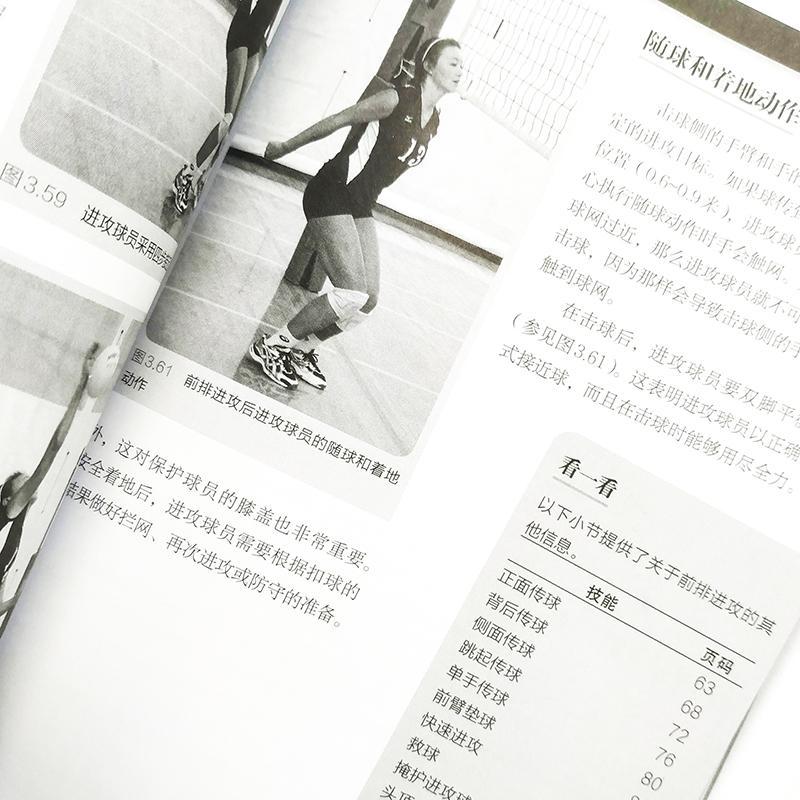 图3.59 进攻球员采用四步
13
图3.61 前排进攻后进攻球员的随球和着地
动作
外，这对保护球员的膝盖也非常重要。
安全着地后，进攻球员需要根据扣球的
结果做好拦网、再次进攻或防守的准备。
随球和着地动作
击球侧的手臂和手的
定的进攻目标。如果球传
位置（0.6~0.9米），进攻球员
心执行随球动作时手会触网。
球网过近，那么进攻球员就不可
击球，因为那样会导致击球侧的手
触到球网。
在击球后，进攻球员要双脚平
（参见图3.61）。这表明进攻球员以正确
式接近球，而且在击球时能够用尽全力。
看一看
以下小节提供了关于前排进攻的其
他信息。
技能 页码
正面传球 63
背后传球 68
侧面传球 72
跳起传球 76
单手传球 80
前臂垫球
快速进攻
救球
掩护进攻球
头顶